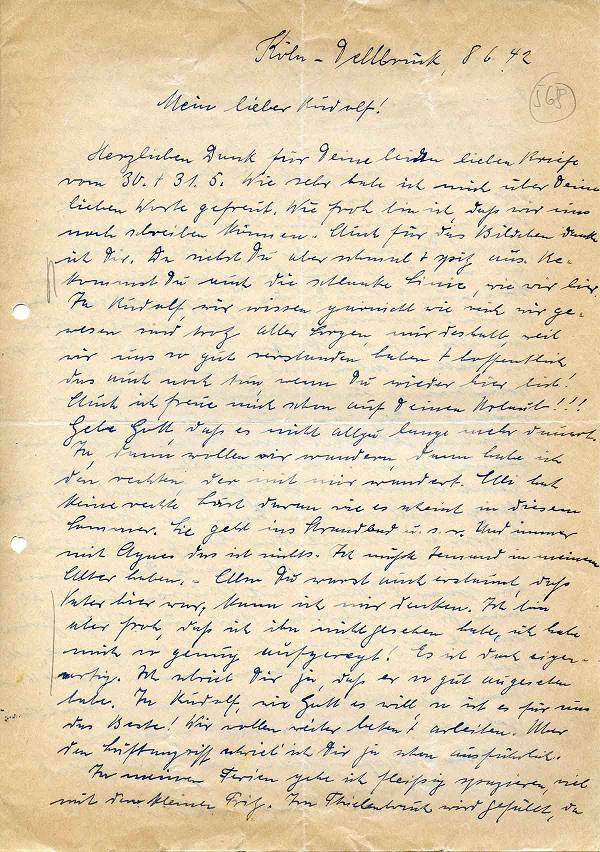 Köln-Dellbrück, 8.6.42
565
Mein lieber Rudolf!
Herzlichen Dank für Deine beiden lieben Briefe
vom 30. + 31.5. Wie sehr habe ich mich über Deine
lieben Worte gefreut. Wie froh bin ich, daß wir uns
noch schreiben können. Auch für das Bildchen danke
ich Dir. Du siehst Du aber schmal + spitz aus. Be-
kommst Du auch die schlanke Linie, wie wir hier.
Ja Rudolf, wir wissen garnicht wie reich wir ge-
wesen sind trotz aller Sorgen, nur deshalb, weil
wir uns so gut verstanden haben + hoffentlich
das auch noch tun wenn Du wieder hier bist!
Auch ich freue mich schon auf Deinen Urlaub!!!
Gebe Gott daß es nicht allzu lange mehr dauert.
Ja, dann wollen wir wandern, dann habe ich
den rechten der mit mir wandert. Elli hat
keine rechte Lust daran wie es scheint in diesem
Sommer. Sie geht ins Strandbad u.s.w. Und immer
mit Agnes das ist nichts. Ich möchte Jemand in meinem
Alter haben. - Also Du warst auch erstaunt, daß
Vater hier war, kann ich mir denken. Ich bin
aber froh, daß ich ihn nicht gesehen habe, ich hätte
mich so genug aufgeregt! Es ist doch eigen-
artig. Ich schrieb Dir ja, daß er so gut ausgesehen
habe. Ja Rudolf, wie Gott es will so ist es für uns
das Beste! Wir wollen weiter beten + arbeiten. Über
den Luftangriff schrieb ich Dir ja schon ausführlich.
In meinen Ferien gehe ich fleißig spazieren, viel
mit dem kleinen Fritz. Im Thielenbruch wird gefällt, da